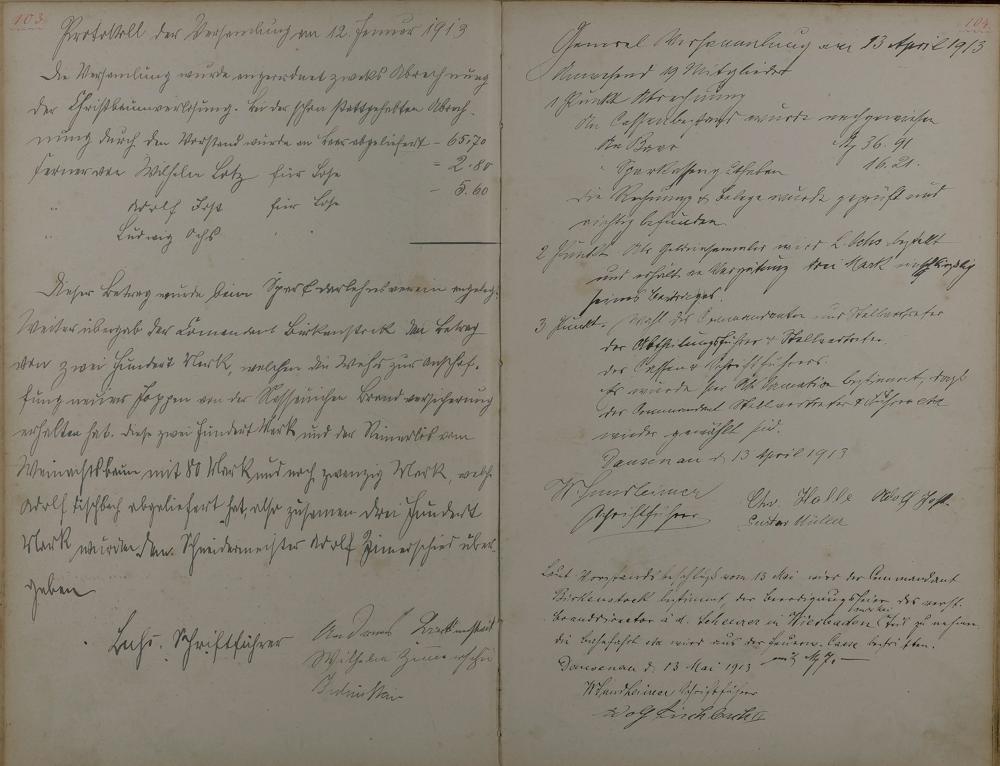 103.
Protokoll der Versamlung am 12. Januar 1913
Die Versamlung wurde angeordnet zwecks Abrechnung
der Christbaumverlosung. Bei der schon stattgehabten Abrech-
nung durch den Vorstand wurde an Baar abgeliefert – 65.70
ferner von Wilhelm Lotz für Lose = 2.80
" Adolf Jost für Lose – 5.60
" Ludwig Ochs "
Dieser Betrag wurde beim Spar & darlehnsverein angelegt.
Weiter übergab der Comandant Birkenstock den Betrag
von zwei Hundert Mark, welchen die Wehr zur Anschaf-
fung neuer Joppen von der Nassauischen Brandversicherung
erhalten hat. Diese zwei Hundert Mark und der Reinerlös vom
Weinachtsbaum mit 80 Mark und noch zwanzig Mark, welche
Adolf Fischbach abgeliefert hat, also zusamen drei Hundert
Mark wurden dem Schneidermeister Adolf Zimerschied über-
geben
Schriftführer
Wilhelm Zimerschied
104.
General Versammlung am 13 April 1913
Anwesend 19 Mitglieder
1 Punkt Abrechnung
An Cassenbestand wurde nachgewiesen
An Baar M 36.91
" Sparkassenguthaben 16.21.
Die Rechnung & Belege wurde geprüft und
richtig befunden.
2 Punkt. Als Geldeinsammler wird L. Ochs bestellt
und erhält an Vergütung drei Mark
seines Beitrages.
3 Punkt. Wahl des Commandanten und Stellvertreter
der Abtheilungsführer & Stellvertreter.
des Cassen & Schriftführers.
Es wurde per Aklamation bestimmt, dass
der Commandant Stellvertreter & Führer etc
wieder gewählt sind.
Dausenau d. 13 April 1913
W Handheimer
Schriftführer
Chr. Halle Adolf Jost.
Gustav Müller
Laut Vorstandsbeschluß vom 13 Mai wird der Commandant
Birkenstock bestimmt, der Beerdigungsfeier des verst.
Branddirector a. d. Scheurer in Wiesbaden Teil zu nehmen
die Bahnfahrt etc wird aus der Feuerw. Casse bestritten.
Dausenau d. 13 Mai 1913 mit M
W Handheimer Schriftführer
Adolf Fischbach II